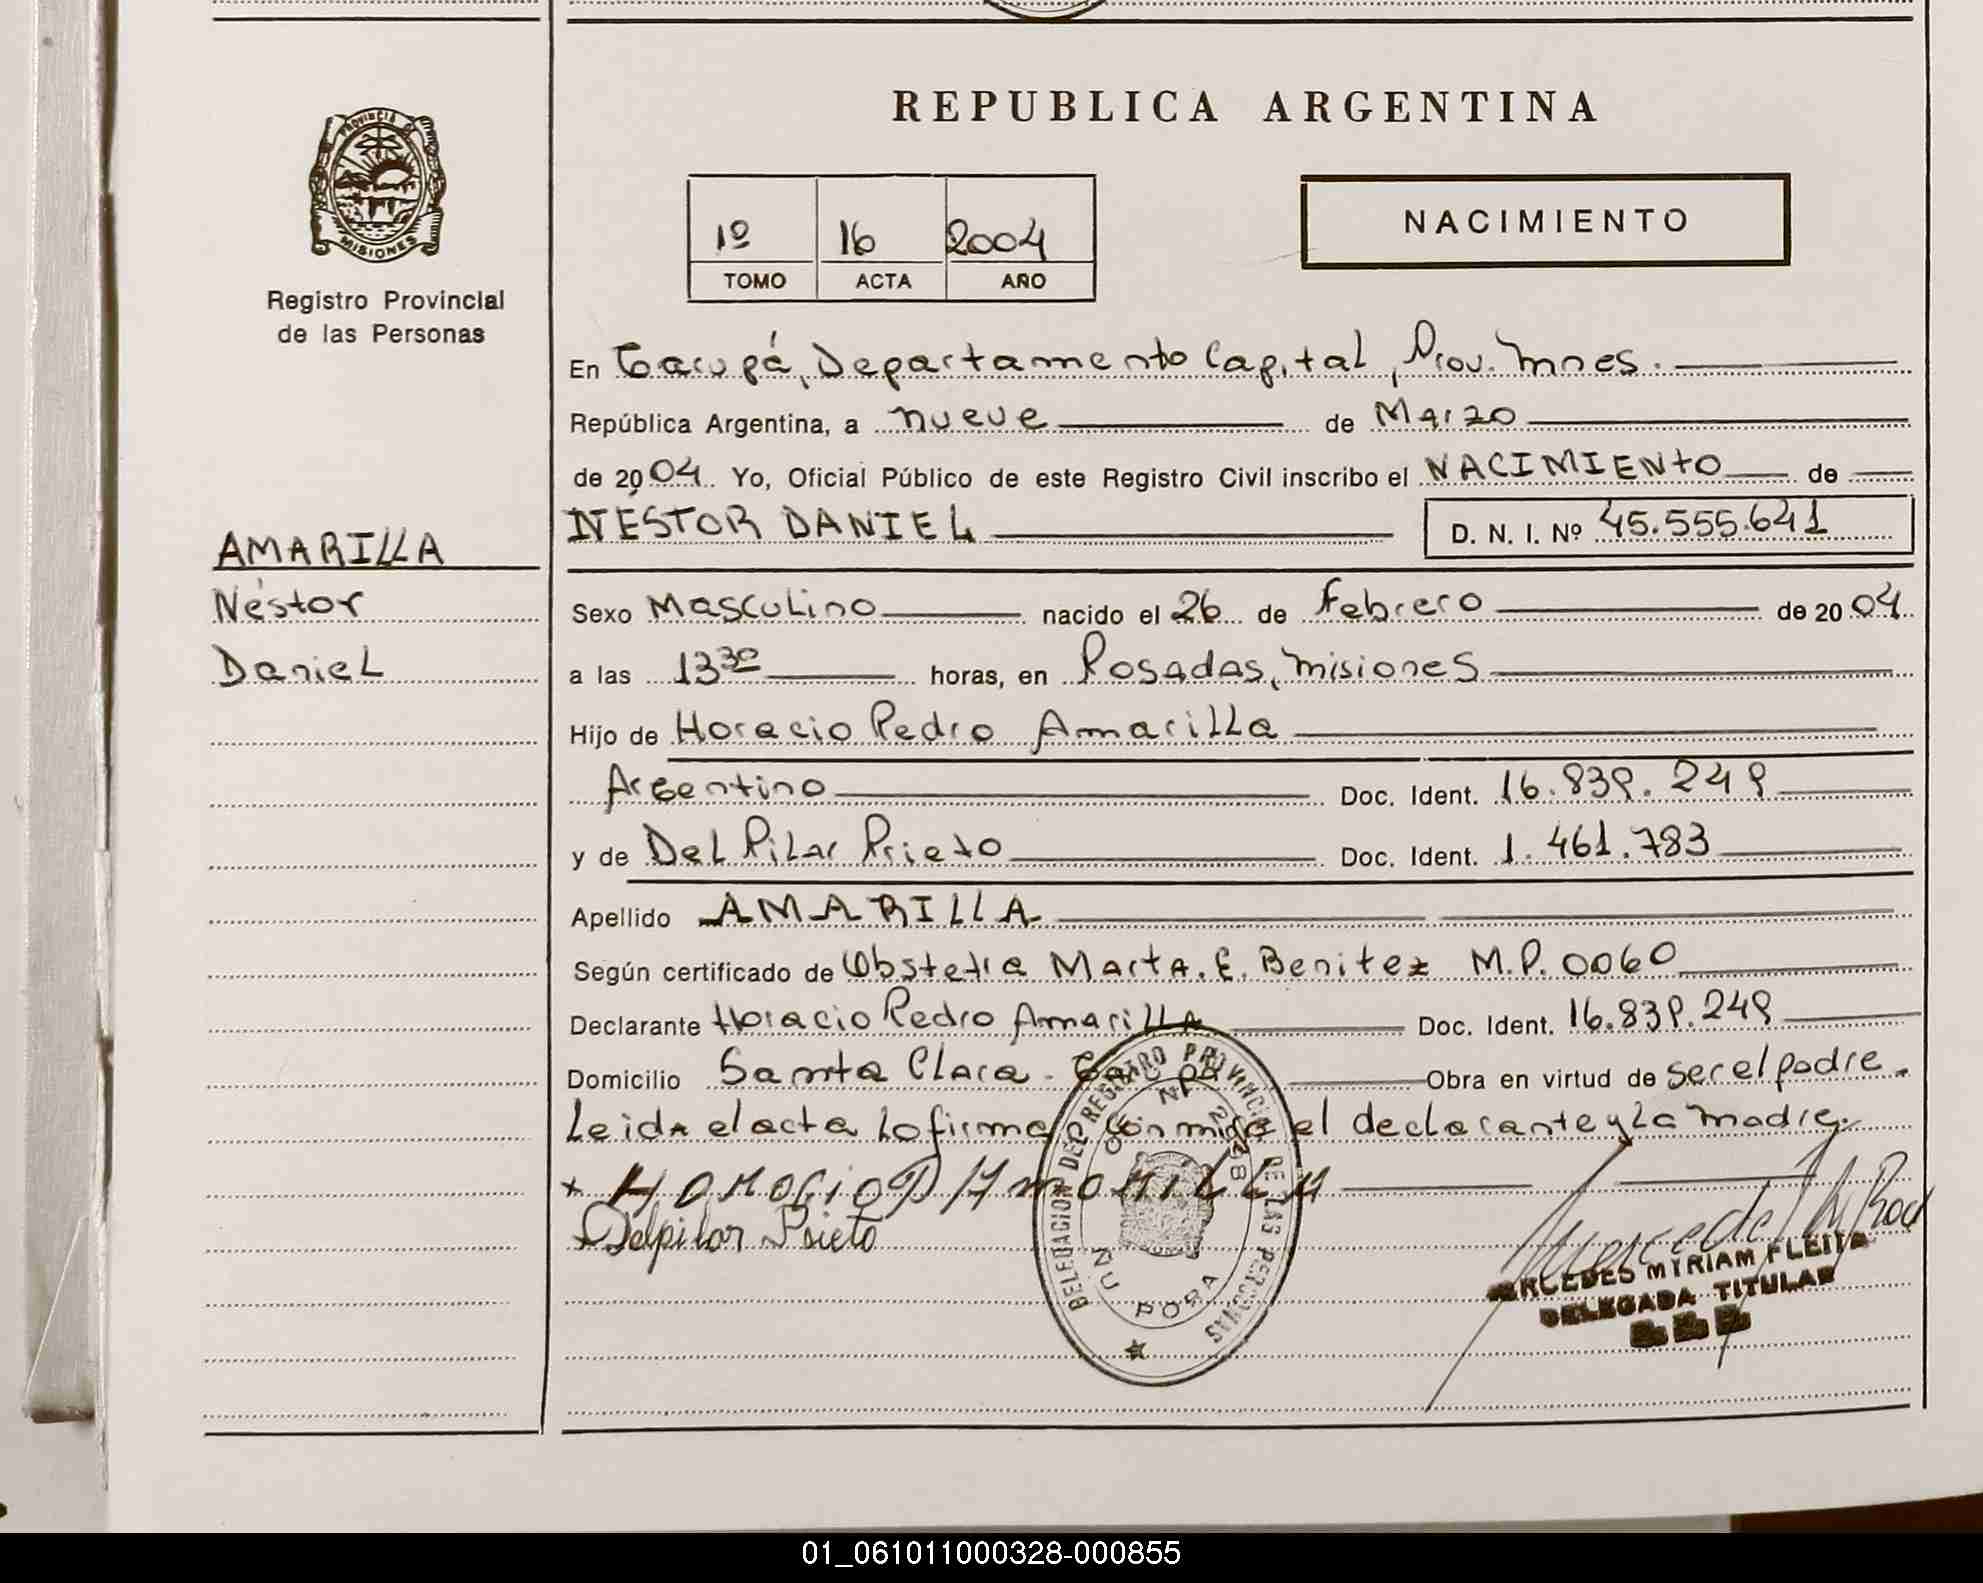 REPUBLICA ARGENTINA
PROVINCIA DE
MISIONES
Registro Provincial
de las Personas
1º 16 2004
TOMO ACTA AÑO
NACIMIENTO
En Garupá, Departamento Capital, Prov. Mnes.
República Argentina, a nueve de Marzo
de 2004. Yo, Oficial Público de este Registro Civil inscribo el NACIMIENTO de
NÉSTOR DANIEL D. N. I. Nº 45.555.641
AMARILLA
Néstor
Daniel
Sexo Masculino nacido el 26 de Febrero de 2004
a las 13 30 horas, en Posadas, Misiones
Hijo de Horacio Pedro Amarilla
Argentino Doc. Ident. 16.839.249
y de Del Pilar Prieto Doc. Ident. 1.461.783
Apellido AMARILLA
Según certificado de Obstetra Marta. E. Benitez M.P. 0060
Declarante Horacio Pedro Amarilla Doc. Ident. 16.839.249
Domicilio Santa Clara - Garupá Obra en virtud de ser el padre.
Leida el acta lo firma conmigo el declarante y la madre.
Horacio P Amarilla
Delpilar Prieto
DELEGACION DEL REGISTRO PROVINCIAL DE LAS PERSONAS
ÑU PORA
MERCEDES MYRIAM FLEITA
DELEGADA TITULAR
01_061011000328-000855